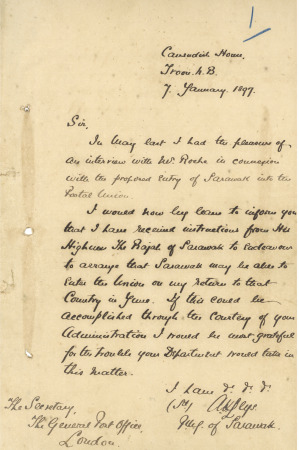 1
Cavendish House,
Troon. N.B.
7. January. 1897.
Sir,
In May last I had the pleasure of
an interview with Mr. Roche in connexion
with the proposed entry of Sarawak into the
Postal Union.
I would now beg leave to inform you
that I have received instructions from His
Highness The Rajah of Sarawak to endeavour
to arrange that Sarawak may be able to
enter the Union on my return to that
Country in June. If this could be
accomplished through the Courtesy of your
Administration I would be most grateful
for the trouble your Department would take in
this matter.
I have &. &. &.
(Sg)
of Sarawak.
The Secretary,
The General Post Office,
London.